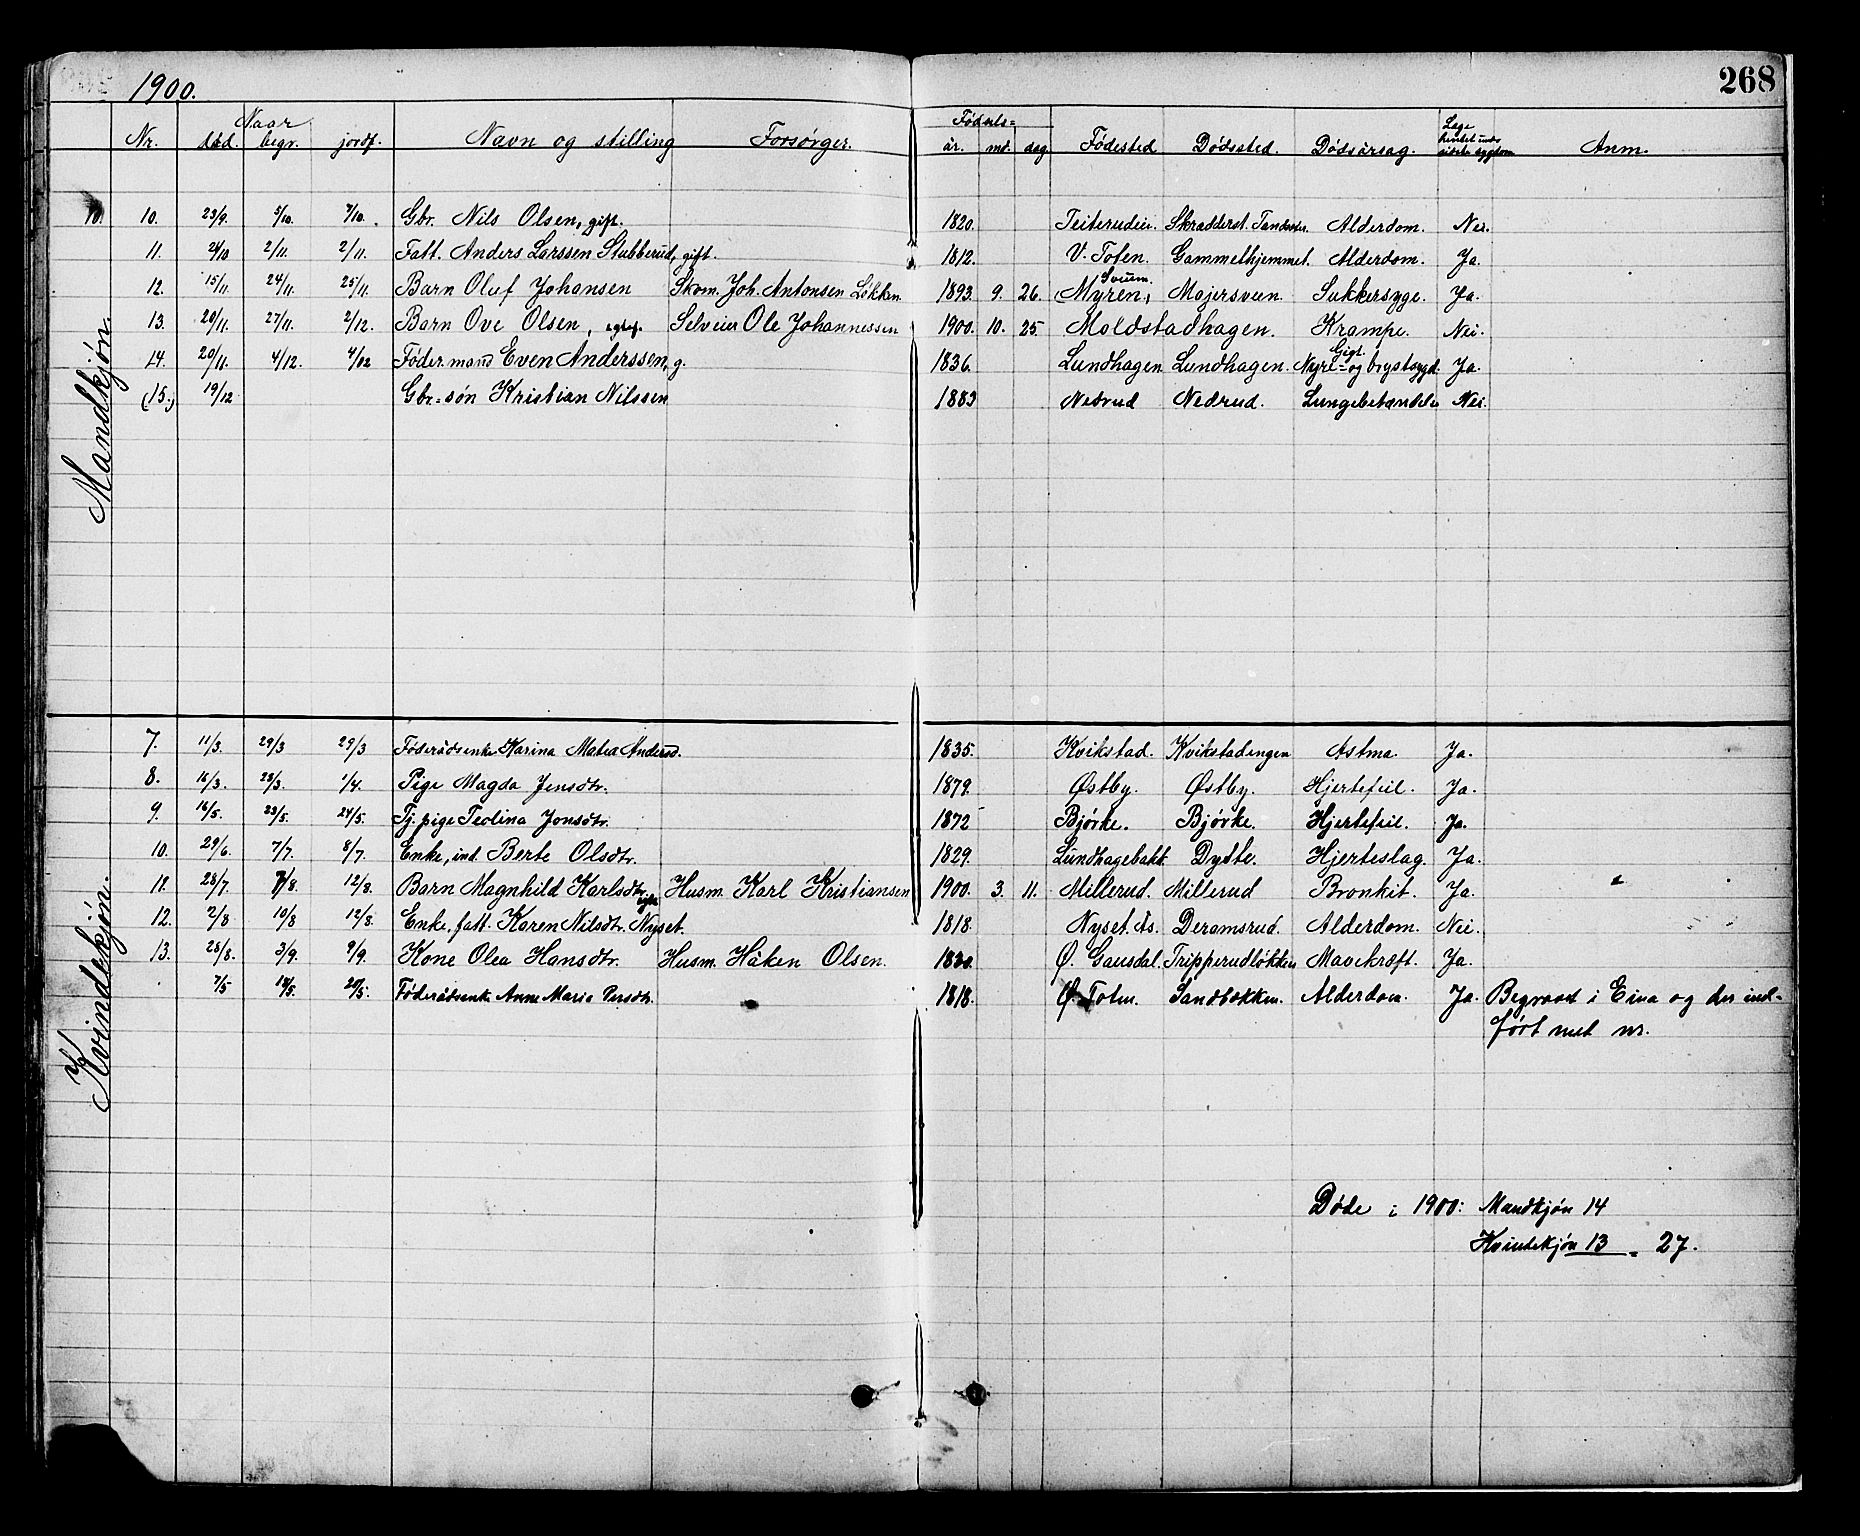 1900.
268
Nr. Naar død. begr. jordf. Navn og stilling Forsørger. Fødsels= år. md. dag Fødested Dødssted. Dødsårsag. Anm.
Mandkjøn.
10. 10. 23/9. 5/10. 7/10. Gbr. Nils Olsen, gift. 1820. Teiterudeie. Alderdom. Nei.
11. 24/10 2/11. 2/11. Fatt. Anders Larssen Stubberud, gift. 1812. V. Toten. Gammelhjemmet. Alderdom. Ja.
12. 15/11. 24/11. 25/11. Barn Oluf Johansen Skom. Joh. Antonsen Løkken 1893. 9. 26. Myren, Sukkersyge. Ja.
13. 20/11. 27/11. 2/12. Barn Ove Olsen, Selveier Ole Johannessen 1900. 10. 25. Moldstadhagen. Krampe. Nei.
14. 20/11. 4/12. 4/12 Føder.mand Even Anderssen, g. 1836. Lundhagen Lundhagen. Gigt. Nyre- og brystsygd. Ja.
(15.) 19/12 Gbr.=søn Kristian Nilssen 1883 Nedrud Nedrud. Nei.
Kvindekjøn.
7. 11/3. 29/3 29/3 Føderådsenke Karina Matea Andersd. 1835. Kvikstad. Kvikstadengen Astma. Ja.
8. 16/3. 23/3. 1/4. Pige Magda Jensdtr. 1879. Østby. Østby. Hjertefeil. Ja.
9. 16/5. 23/5. 24/5. Tj. pige Teolina Jonsdtr. 1872 Bjørke. Bjørke. Hjertefeil. Ja.
10. 29/6. 7/7. 8/7. Enke, ind. Berte Olsdtr. 1829. Lundhagebakk. Dyste. Hjerteslag. Ja.
11. 28/7. 7/8. 12/8. Barn Magnhild Karlsdtr. Husm. Karl Kristiansen 1900. 3. 11. Millerud. Millerud Bronkit. Ja.
12. 2/8 10/8 12/8. Enke, fatt. Karen Nilsdtr. Nyset. 1818. Nyset Ås. Deramsrud. Alderdom. Nei.
13. 28/8. 3/9. 9/9. Kone Olea Hansdtr. Husm. Håken Olsen. 1820. Ø. Gausdal. Tripperudløkken Mavekræft. Ja.
7/5 20/5. Føderådsenke Anne Marie Persdtr. 1818. Ø. Toten. Sandbakken. Alderdom. Ja. Begravet i Eina og der ind-
ført met nr.
Døde i 1900: Mandkjøn 14
Kvindekjøn 13 = 27.